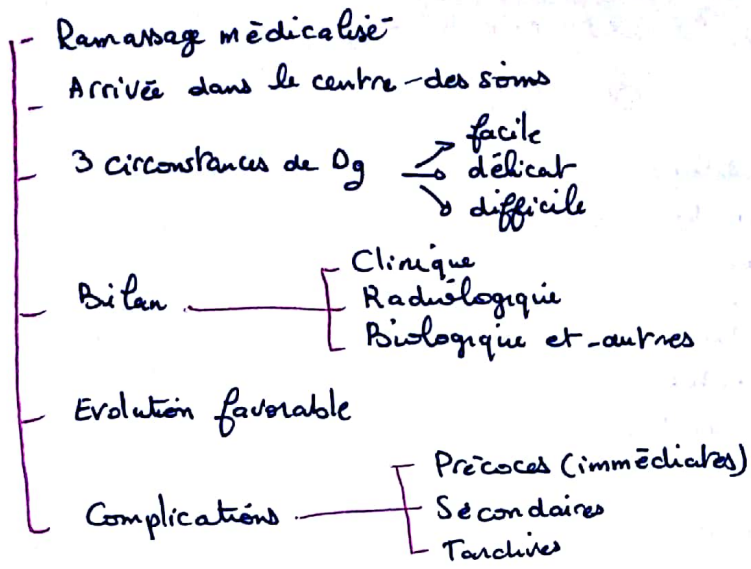 - Ramassage médicalisé
- Arrivée dans le centre-des soins
- 3 circonstances de Dg
facile
délicat
difficile
- Bilan
Clinique
Radiologique
Biologique et-autres
- Evolution favorable
Complications
Précoces (immédiates)
Secondaires
Tardives